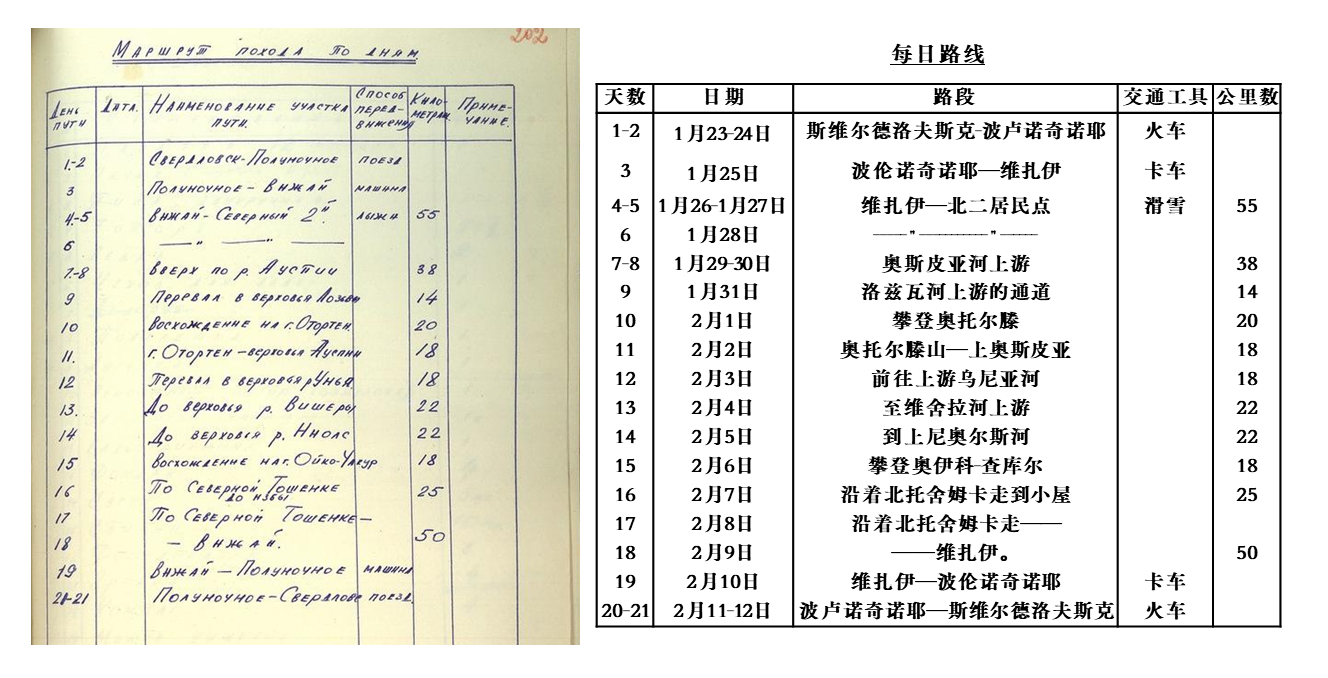 202
МАРШРУТ ПОХОДА ПО ДНЯМ.
ДЕНЬ ПУТИ ДАТА. НАИМЕНОВАНИЕ УЧАСТКА ПУТИ. СПОСОБ ПЕРЕД-ВИЖЕНИЯ КИЛО-МЕТРАЖ. ПРИМЕ-ЧАНИЕ.
1-2 СВЕРДЛОВСК-ПОЛУНОЧНОЕ ПОЕЗД
3 ПОЛУНОЧНОЕ - ВИЖАЙ МАШИНА
4-5 ВИЖАЙ-СЕВЕРНЫЙ 2й. ЛЫЖИ 55
6 —— " —— " ——
7-8 ВВЕРХ ПО Р. АУСПИИ 38
9 ПЕРЕВАЛ В ВЕРХОВЬЯ ЛОЗЬВЫ 14
10 ВОСХОЖДЕНИЕ НА Г. ОТОРТЕН 20
11. Г. ОТОРТЕН - ВЕРХОВЬЯ АУСПИИ 18
12 ПЕРЕВАЛ В ВЕРХОВЬЯ Р УНЬЯ. 18
13. ДО ВЕРХОВЬЯ Р. ВИШЕРЫ 22
14 ДО ВЕРХОВЬЯ Р. НИОЛС 22
15 ВОСХОЖДЕНИЕ НА Г. ОЙКО-ЧАКУР 18
16 ПО СЕВЕРНОЙ ТОШЕНКЕ ДО ИЗБЫ 25
17 ПО СЕВЕРНОЙ ТОШЕНКЕ -
18 - ВИЖАЙ. 50
19 ВИЖАЙ - ПОЛУНОЧНОЕ МАШИНА
20-21 ПОЛУНОЧНОЕ - СВЕРДЛОВС ПОЕЗД.
每日路线
天数 日期 路段 交通工具 公里数
1-2 1月23-24日 斯维尔德洛夫斯克-波卢诺奇诺耶 火车
3 1月25日 波伦诺奇诺耶—维扎伊 卡车
4-5 1月26-1月27日 维扎伊—北二居民点 滑雪 55
6 1月28日 ——"————"——
7-8 1月29-30日 奥斯皮亚河上游 38
9 1月31日 洛兹瓦河上游的通道 14
10 2月1日 攀登奥托尔滕 20
11 2月2日 奥托尔滕山—上奥斯皮亚 18
12 2月3日 前往上游乌尼亚河 18
13 2月4日 至维舍拉河上游 22
14 2月5日 到上尼奥尔斯河 22
15 2月6日 攀登奥伊科-查库尔 18
16 2月7日 沿着北托舍姆卡走到小屋 25
17 2月8日 沿着北托舍姆卡走——
18 2月9日 ——维扎伊。 50
19 2月10日 维扎伊—波伦诺奇诺耶 卡车
20-21 2月11-12日 波卢诺奇诺耶—斯维尔德洛夫斯克 火车